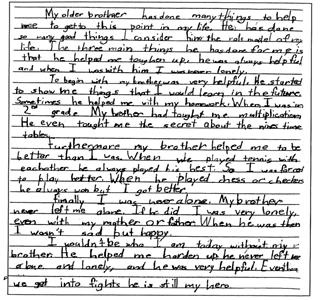 My older brother has done many things to help
me to get to this point in my life. He has done
so many good things I consider him the role model of my
life. The three main things he has done for me is
that he helped me toughen up, he was always helpful
and when I was with him I was never lonely.
To begin with my brother was very helpful. He started
to show me things that I would learn in the future.
Sometimes he helped me with my homework. When I was in
2nd grade My brother had taught me multiplication
He even taught me the secret about the nines time
tables.
Furthermore my brother helped me to be
better than I was. When we played tennis with
eachother he always played his best. So I was forced
to play better. When he played chess or checkers
he always won but I got better.
Finally I was never alone. My brother
never left me alone. If he did I was very lonely,
even with my mother or father. When he was then
I wasn't sad but happy.
I wouldn't be who I am today without my
brother. He helped me harden up he never left me
alone and lonely, and he was very helpful. Even though
we get into fights he is still my hero.